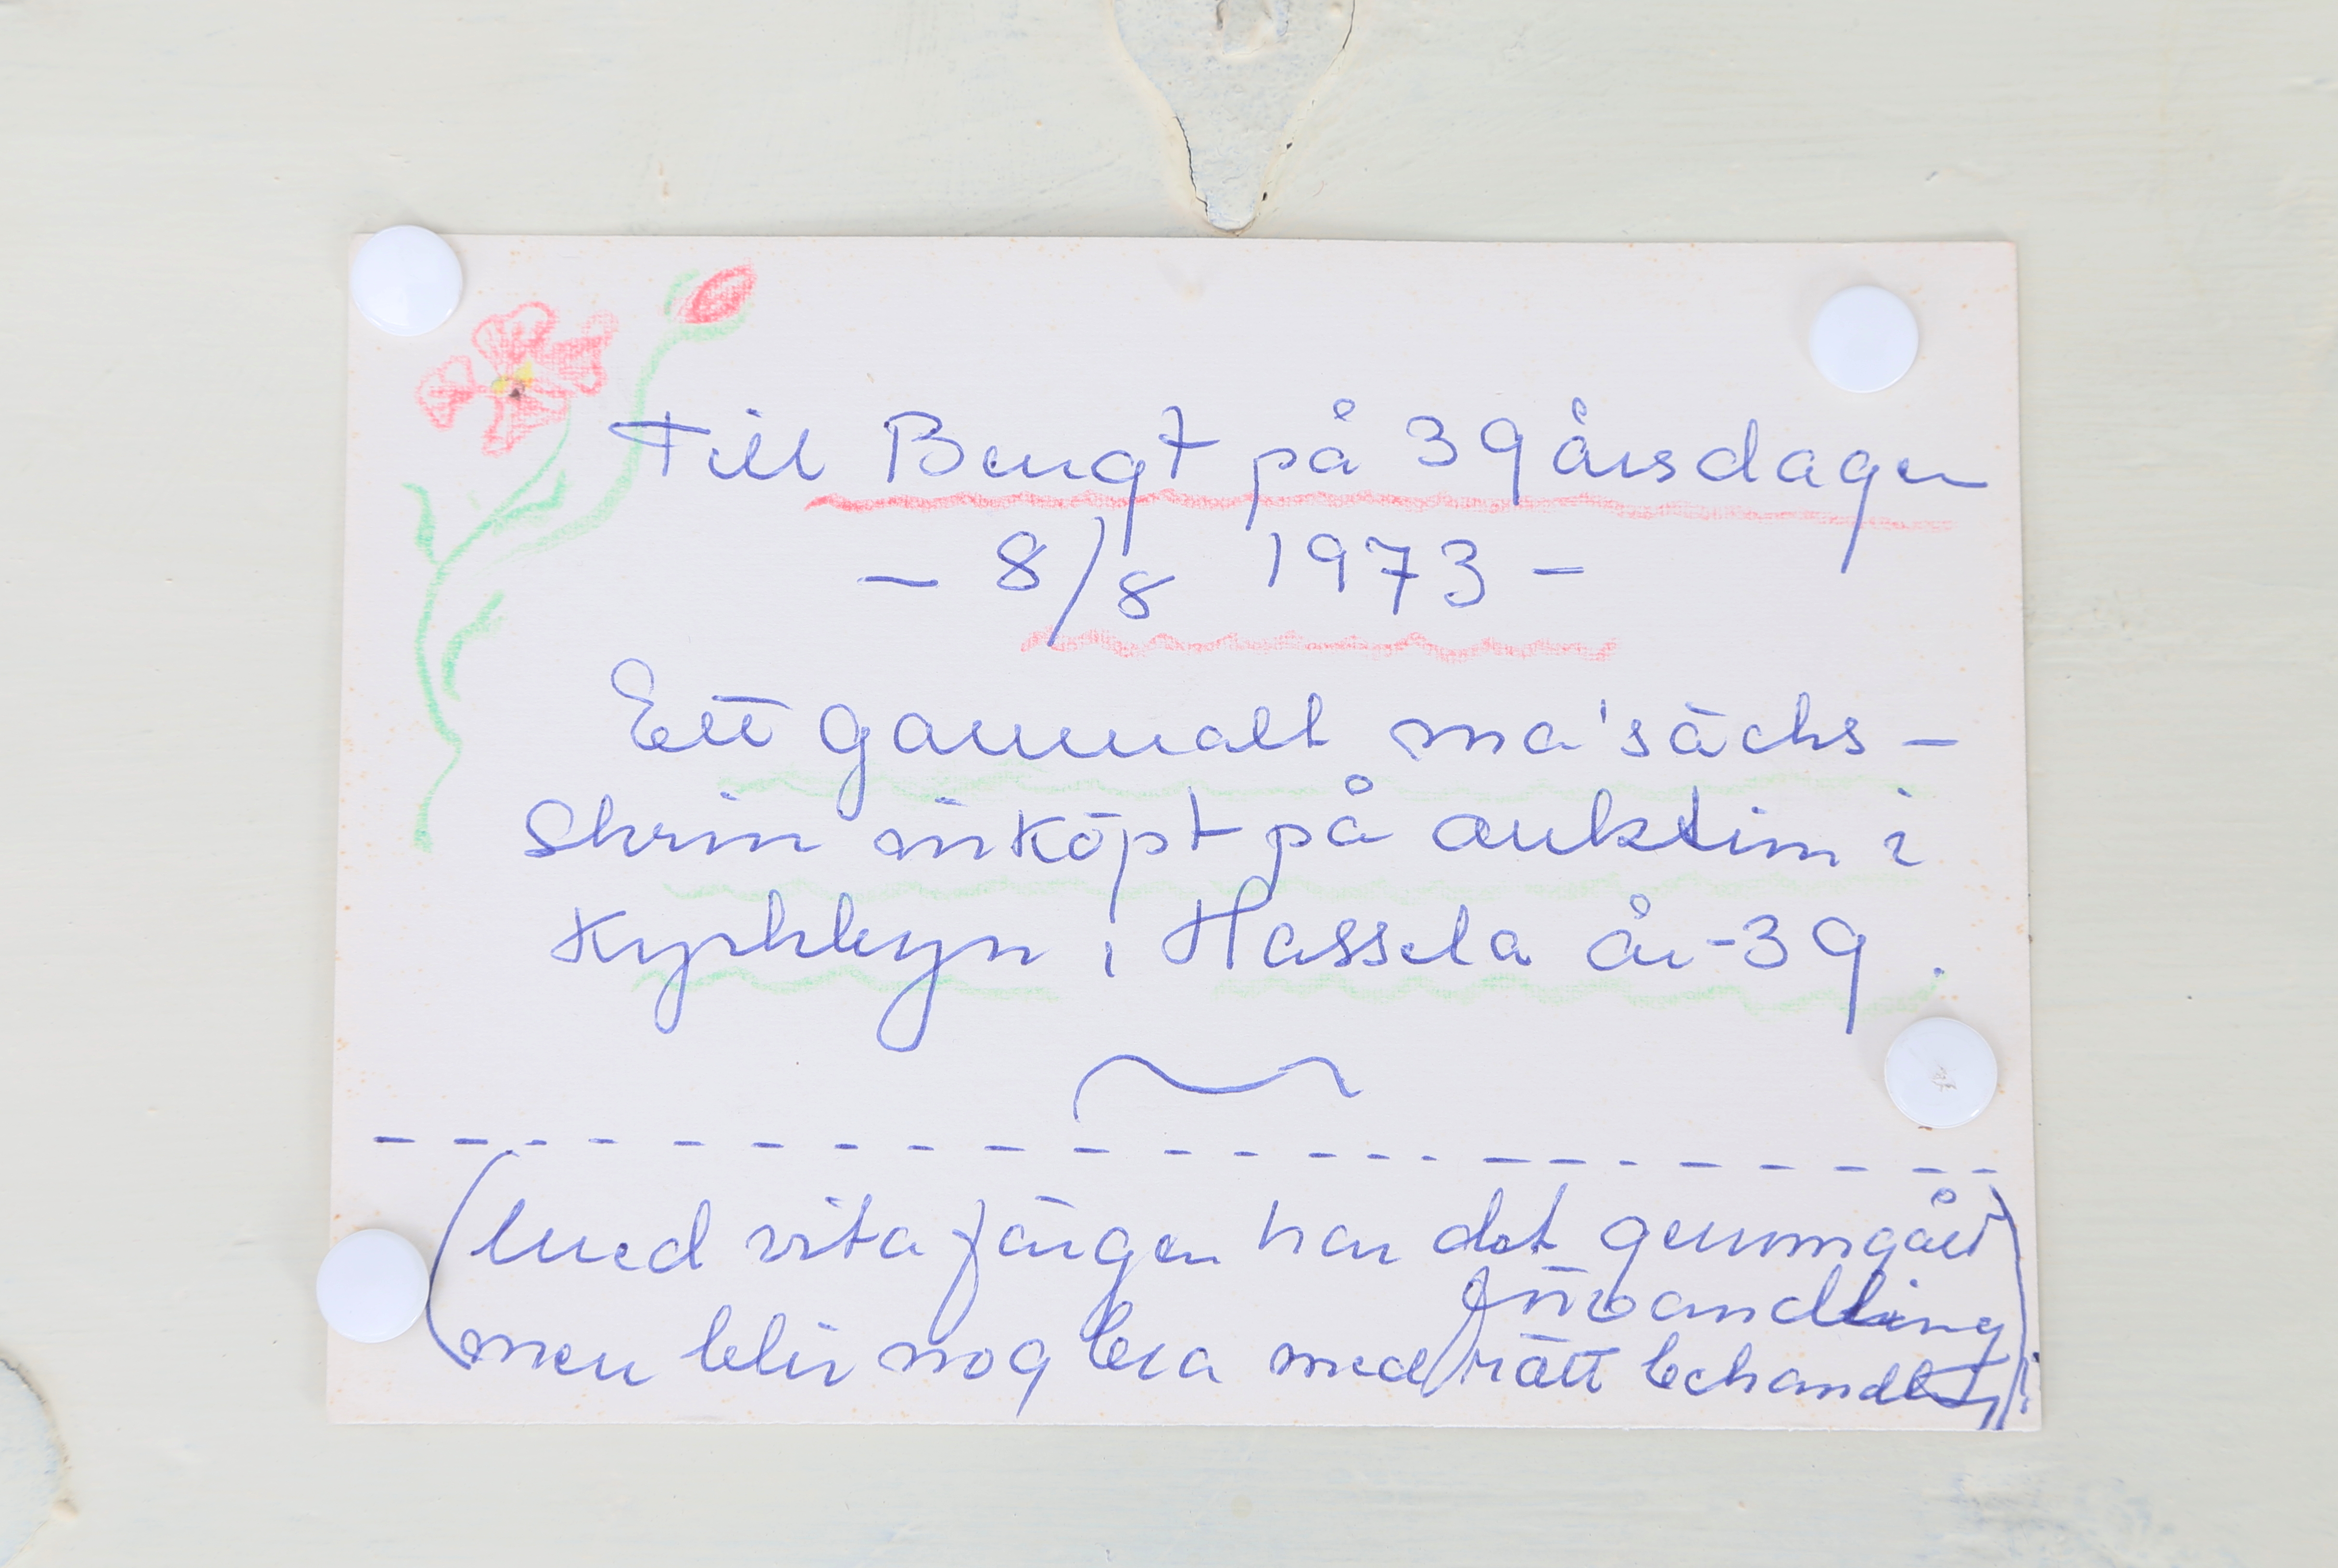 Till Bengt på 39 årsdagen
- 8/8 1973 -
Ett gammalt ma'säcks-
Skrin inköpt på auktion i
Kyrkbyn i Hassela år -39.
(Med vita färgen har det genomgått
förvandling
men blir nog bra med rätt behandling!)